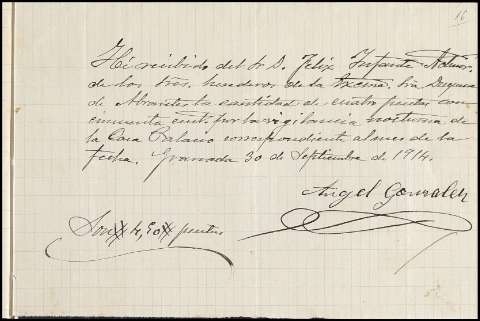 16
He recibido del Sr. D. Felix Infante
de los Sres. herederos de la Excma. Sra. Duquesa
de Abrantes la cantidad de cuatro pesetas con
cincuenta cent. por la vigilancia nocturna de
la Casa Palacio correspondiente al mes de la
fecha. Granada 30 de Septiembre de 1914.
Angel Gonzalez
Son 4,50 pesetas